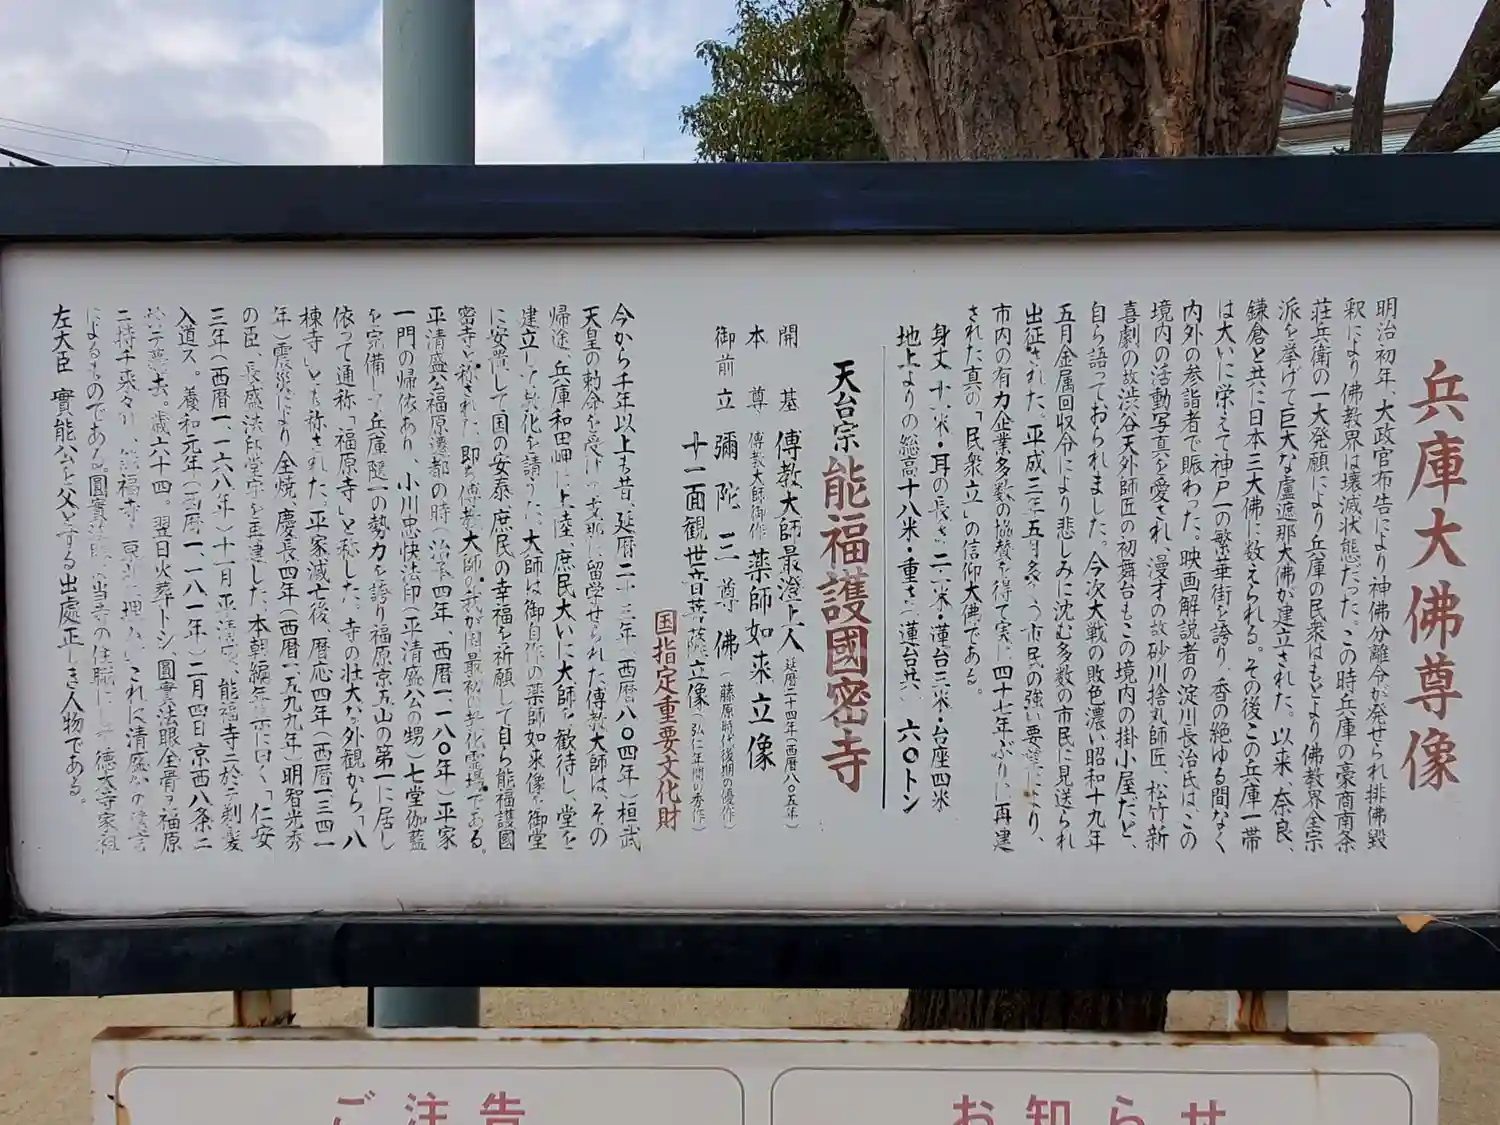 兵庫大佛尊像
明治初年、大政官布告により神佛分離令が発せられ排佛毀
釈により佛教界は壊滅状態だった。この時兵庫の豪商南条
荘兵衛の一大発願により兵庫の民衆はもとより佛教界全宗
派を挙げて巨大な盧遮那大佛が建立された。以来、奈良、
鎌倉と共に日本三大佛に数えられる。その後この兵庫一帯
は大いに栄えて神戸一の繁華街を誇り、香の絶ゆる間なく
内外の参詣者で賑わった。映画解説者の淀川長治氏は、この
境内の活動写真を愛され、漫才の故砂川捨丸師匠、松竹新
喜劇の故渋谷天外師匠の初舞台もこの境内の掛小屋だと、
自ら語っておられました。今次大戦の敗色濃い昭和十九年
五月金属回収令により悲しみに沈む多数の市民に見送られ
出征された。平成三年五月多くの市民の強い要望により、
市内の有力企業多数の協賛を得て実に四十七年ぶりに再建
された真の「民衆立」の信仰大佛である。
身丈十一米・耳の長さ二・一米・蓮台三米・台座四米
地上よりの総高十八米・重さ(蓮台共)六〇トン
天台宗 能福護國密寺
開基 傳教大師最澄上人(延暦二十四年(西暦八〇五年)
本尊 傳教大師御作 薬師如来立像
御前立 彌陀三尊佛(藤原時代後期の優作)
十一面観世音菩薩立像(弘仁年間の秀作)
国指定重要文化財
今から千年以上も昔、延暦二十三年(西暦八〇四年)桓武
天皇の勅命を受け 留学せられた傳教大師は、その
帰途、兵庫和田岬に上陸、庶民大いに大師を歓待し、堂を
建立して教化を請うた、大師は御自作の薬師如来像を御堂
に安置して国の安泰、庶民の幸福を祈願して自ら能福護國
密寺と称された。即ち傳教大師の我が国最初の教化霊場である。
平清盛公福原遷都の時(治承四年、西暦一一八〇年)平家
一門の帰依あり、小川忠快法印(平清盛公の甥)七堂伽藍
を完備して兵庫随一の勢力を誇り福原京五山の第一に居し
依って通称「福原寺」と称した。寺の壮大な外観から「八
棟寺」とも称された。平家滅亡後、暦応四年(西暦一三四一
年)震災により全焼、慶長四年(西暦一五九九年)明智光秀
の臣、長盛法印堂宇を再建した。本朝編年 に曰く、「仁安
三年(西暦一一六八年)十一月平清盛、能福寺ニ於テ剃髪
入道ス。養和元年(西暦一一八一年)二月四日京西八条ニ
於テ薨去。歳六十四。翌日火葬トシ、圓實法眼全骨ヲ福原
ニ持チ来タリ、能福寺 」これは清盛公の遺言
によるものである。圓實法眼、当寺の住職にして徳大寺家祖
左大臣 實能公を父とする出處正しき人物である。
ご注告
お知らせ